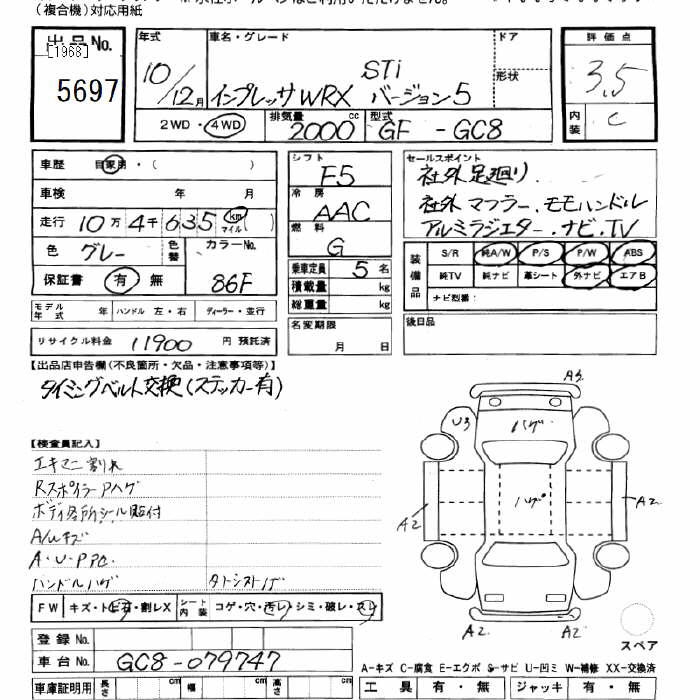 (複合機)対応用紙
出品No.
[1968]
5697
年式
10/12月
車名・グレード
STi
インプレッサWRX バージョン5
ドア
形状
2WD・4WD
排気量
2000 cc
型式
GF - GC8
評価点
3.5
内装
C
車歴 自家用・( )
車検 年 月
走行 10万4千635 km マイル ( )
色 グレー
色替
カラーNo.
86F
保証書 有・無
モデル年式 年 ハンドル 左・右 ディーラー・並行
リサイクル料金 11900 円 預託済
シフト
F5
冷房
AAC
燃料
G
乗車定員 5 名
積載量 kg
総重量 kg
名変期限
月 日
セールスポイント
社外足廻り
社外マフラー.モモハンドル
アルミラジエター.ナビ.TV
装備品
S/R 純A/W P/S P/W ABS
純TV 純ナビ 革シート 外ナビ エアB
ナビ型番:
後日品
【出品店申告欄(不良箇所・欠品・注意事項等)】
タイミングベルト交換(ステッカー有)
【検査員記入】
エキマニ割れ
Rスポイラーアハゲ
ボディ各所シール貼付
A/Wキズ
A・U・P
ハンドルハゲ
FW キズ・ト 有・割レX
シート内装 コゲ・穴・汚レ・シミ・破レ・スレ
登録No.
車台No. GC8-079747
車庫証明用 長さ cm 幅 cm 高さ cm
A3
U3
ハゲ
ハゲ
A2
A2
A2
A2
スペア
A-キズ C-腐食 E-エクボ S-サビ U-凹ミ W-補修 XX-交換済
工具 有・無 ジャッキ 有・無